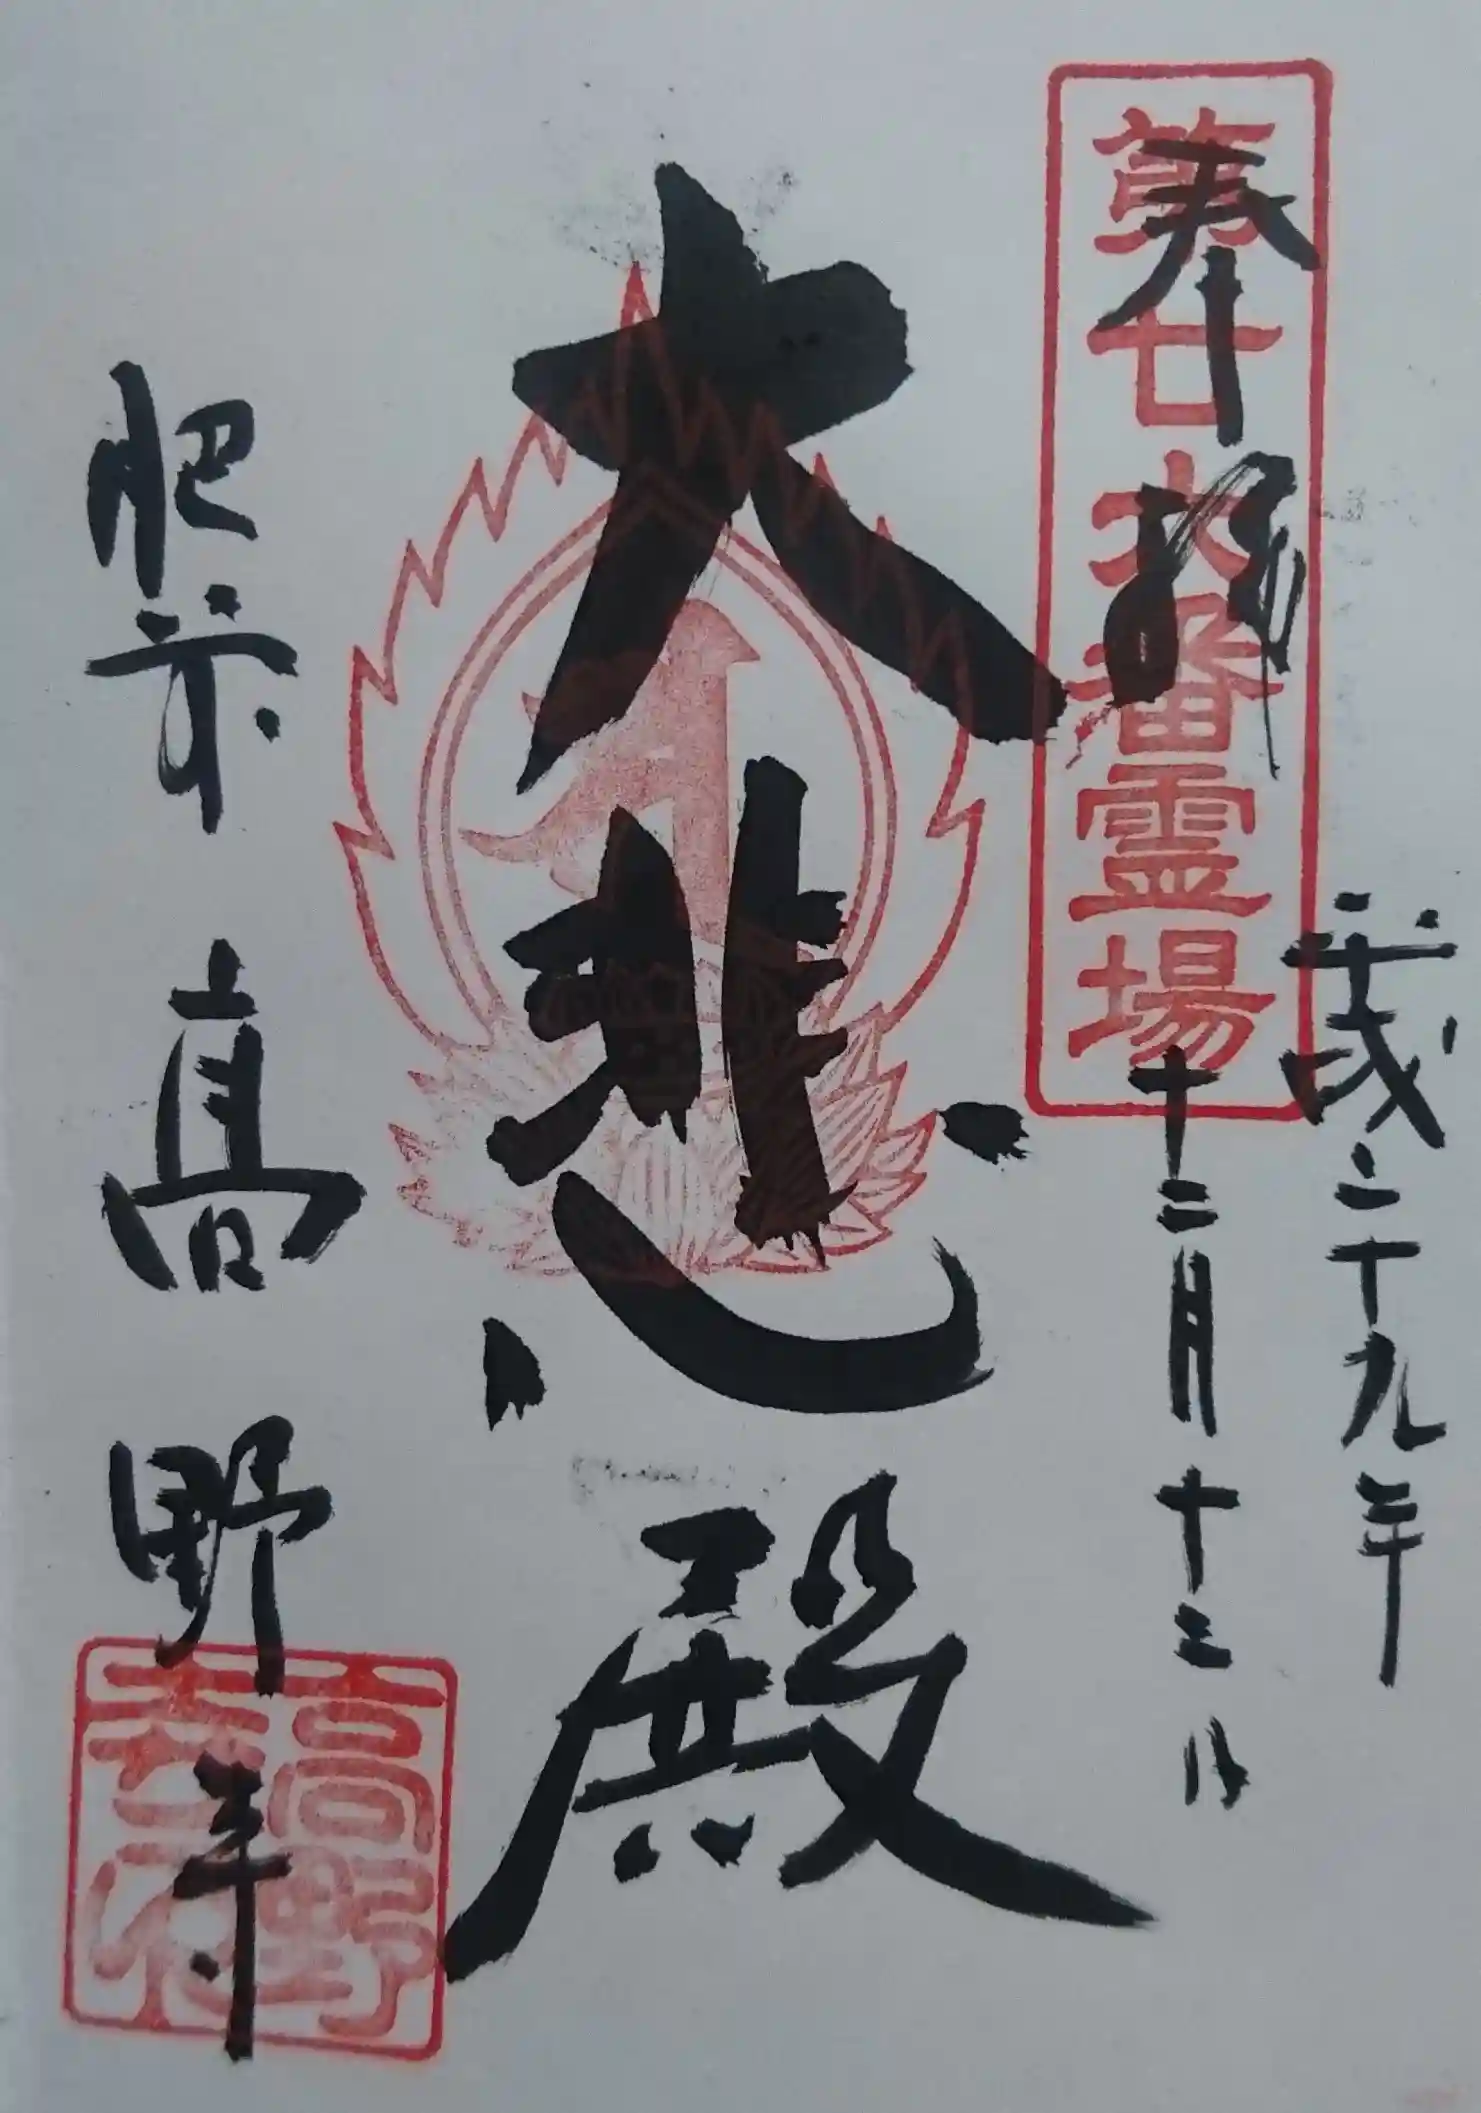 平成二十九年
十二月十三日
奉拝
第廿六番霊場
大悲殿
肥前 高野寺
高野